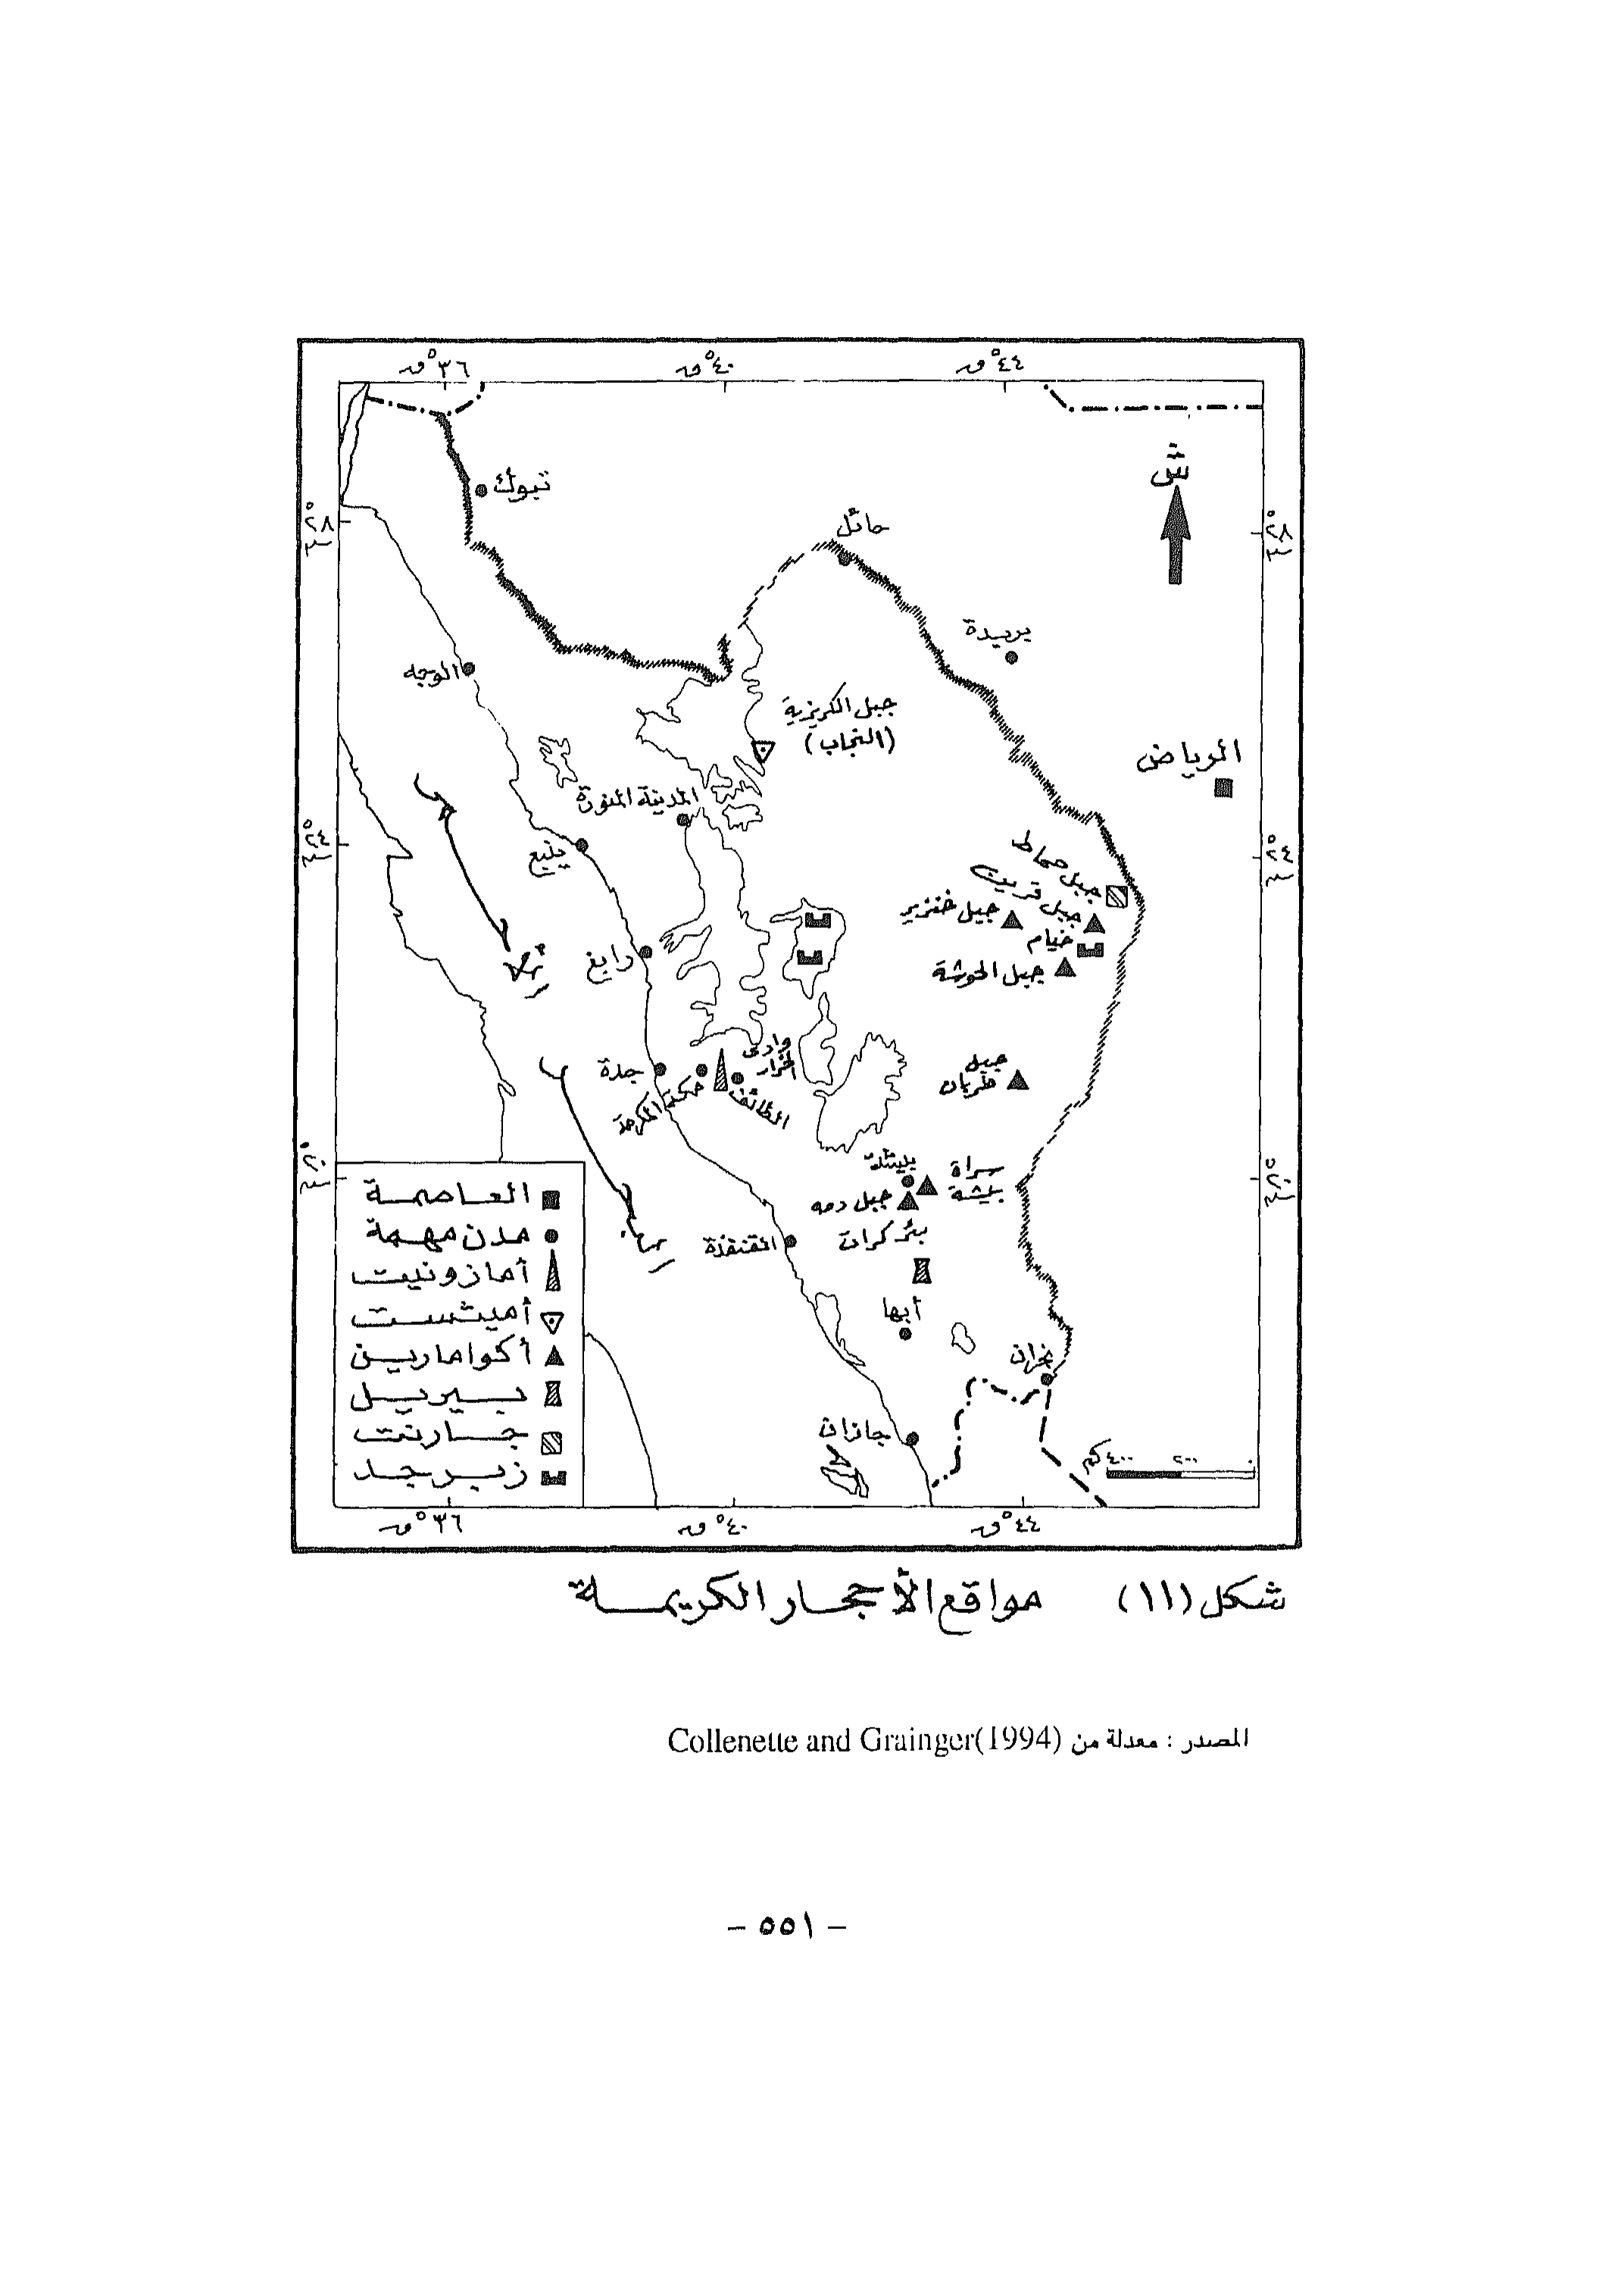 ٣٦° ق
٤٠° ق
٤٤° ق
ش
تبوك
٢٨°
٢٨°
حائل
بريدة
الوجه
جبل الكريزية
(النجاب)
الرياض
المدينة المنورة
ينبع
٢٤°
٢٤°
جبل حماط
جبل قرين
جبل خنزير
خيام
رابغ
جبل الحوشة
البحر
وادى
الخرار
جدة
مكة المكرمة
الطائف
جبل
ظربان
٢٠°
٢٠°
بيشة
سراة
بيشة
جبل دمه
الأحمر
القنفذة
بئر كران
أبها
نجران
جازان
العاصمة
مدن مهمة
أمازونيت
أميثست
أكوامارين
بيريل
جارنت
زبرجد
٤٠٠ كم
٢٠٠
٠
٣٦° ق
٤٠° ق
٤٤° ق
شكل (١١) مواقع الأحجار الكريمة
المصدر : معدلة من Collenette and Grainger(1994)
- ٥٥١ -